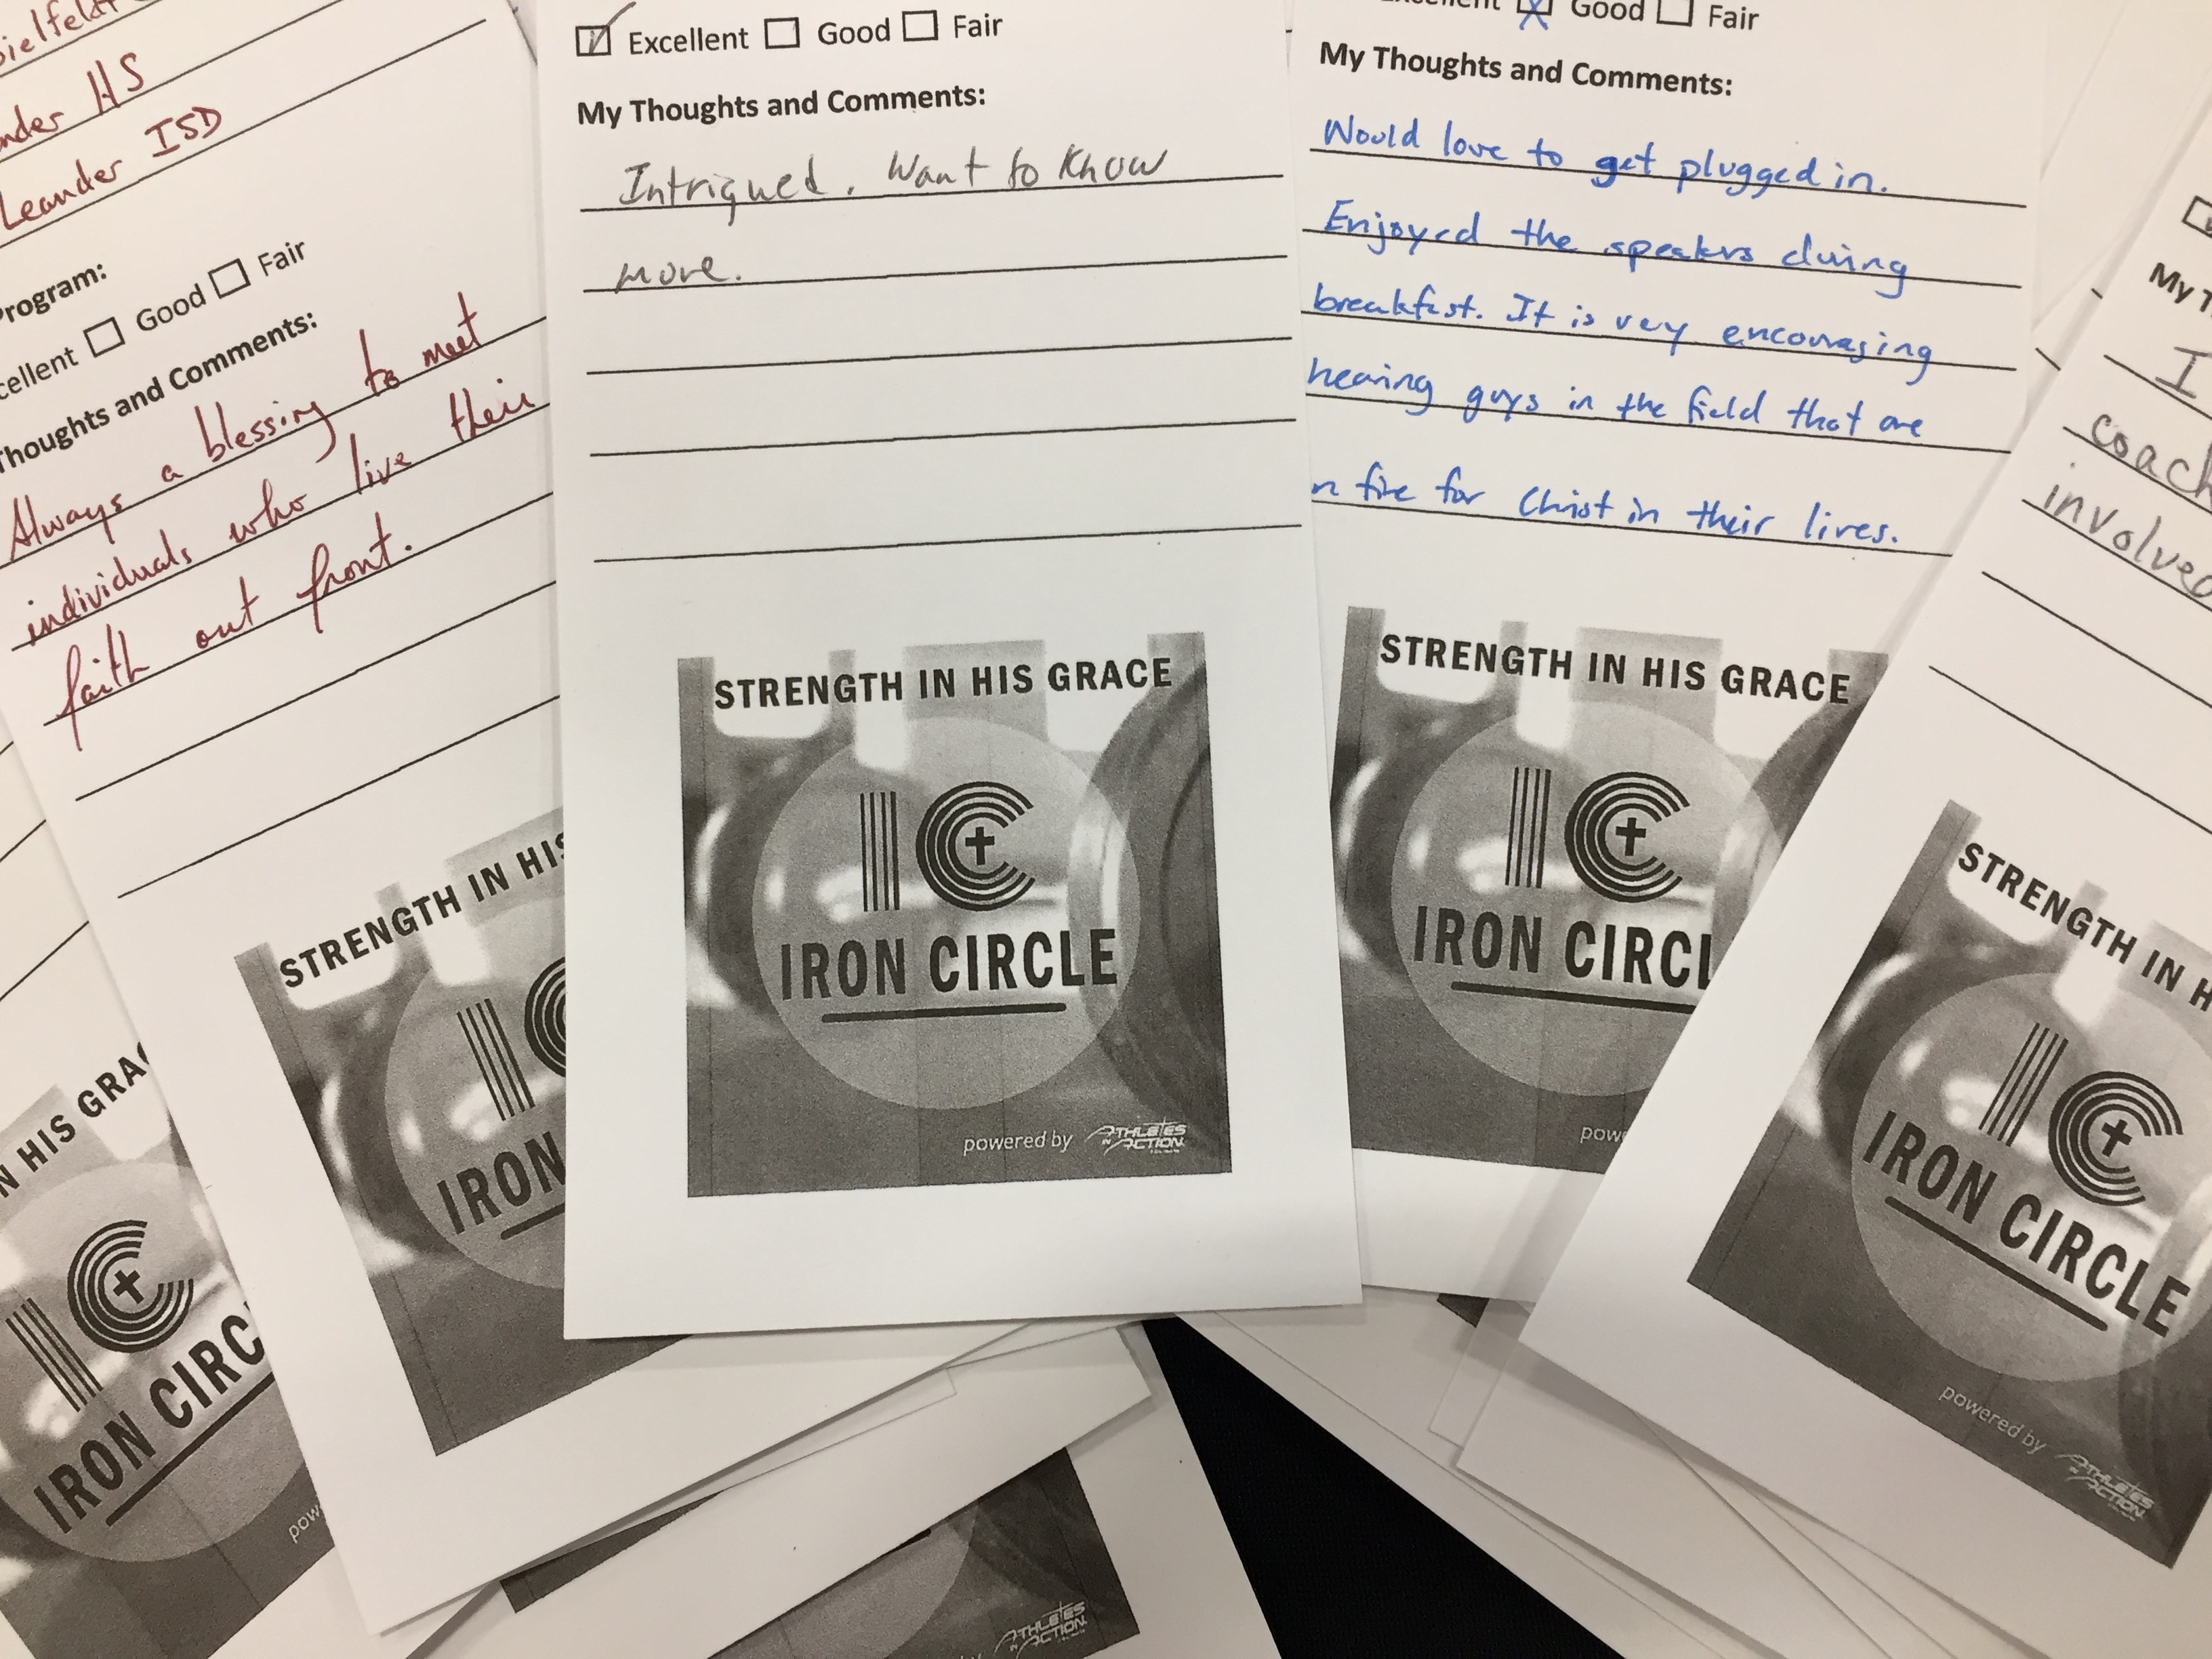 HS
Leander ISD
Program:
Good Fair
Thoughts and Comments:
Always a blessing to meet
individuals who live their
faith out front.
STRENGTH IN HIS
IRON
Excellent Good Fair
My Thoughts and Comments:
Intrigued. Want to Know
more.
STRENGTH IN HIS GRACE
IC
IRON CIRCLE
powered by ATHLETES IN ACTION
Good Fair
My Thoughts and Comments:
Would love to get plugged in.
Enjoyed the speakers during
breakfast. It is very encouraging
hearing guys in the field that are
fire for Christ in their lives.
STRENGTH IN HIS GRACE
IC
IRON
My
I
involved
STRENGTH IN
IC
IRON CIRCLE
powered by ATHLETES IN ACTION
HIS
IC
IRON
ATHLETES IN ACTION